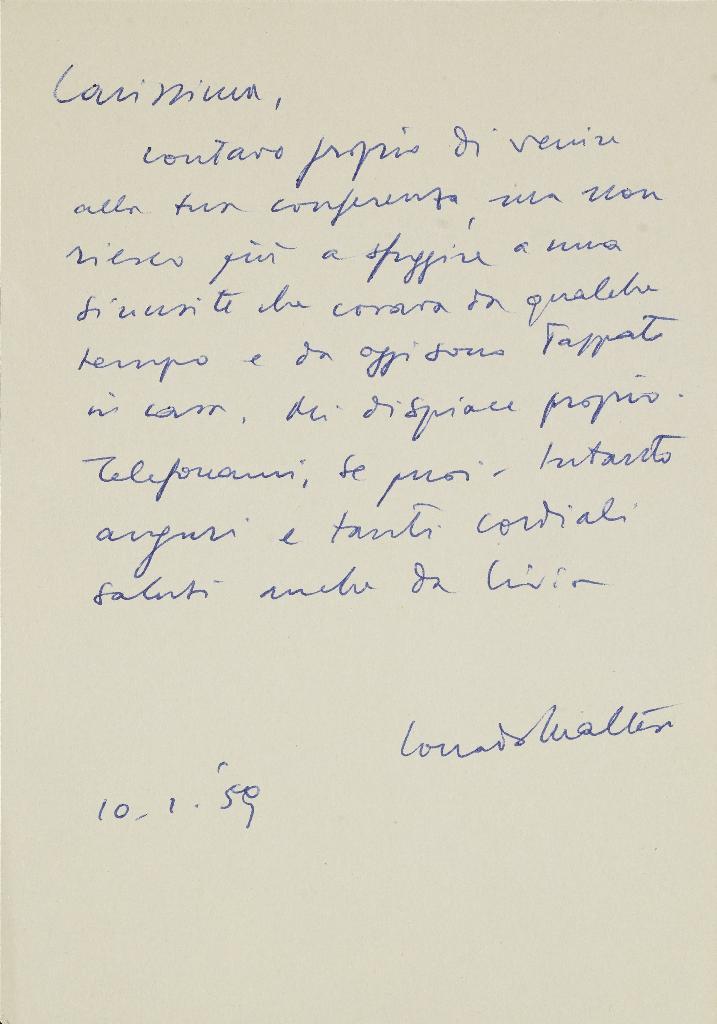 Carissima,
contavo proprio di venire
alla tua conferenza, ma non
riesco più a sfuggire a una
sinusite che covava da qualche
tempo e da oggi sono tappato
in casa. Mi dispiace proprio.
Telefonami, se puoi - Intanto
auguri e tanti cordiali
saluti anche da Livia
Corrado Maltese
10-1-'59